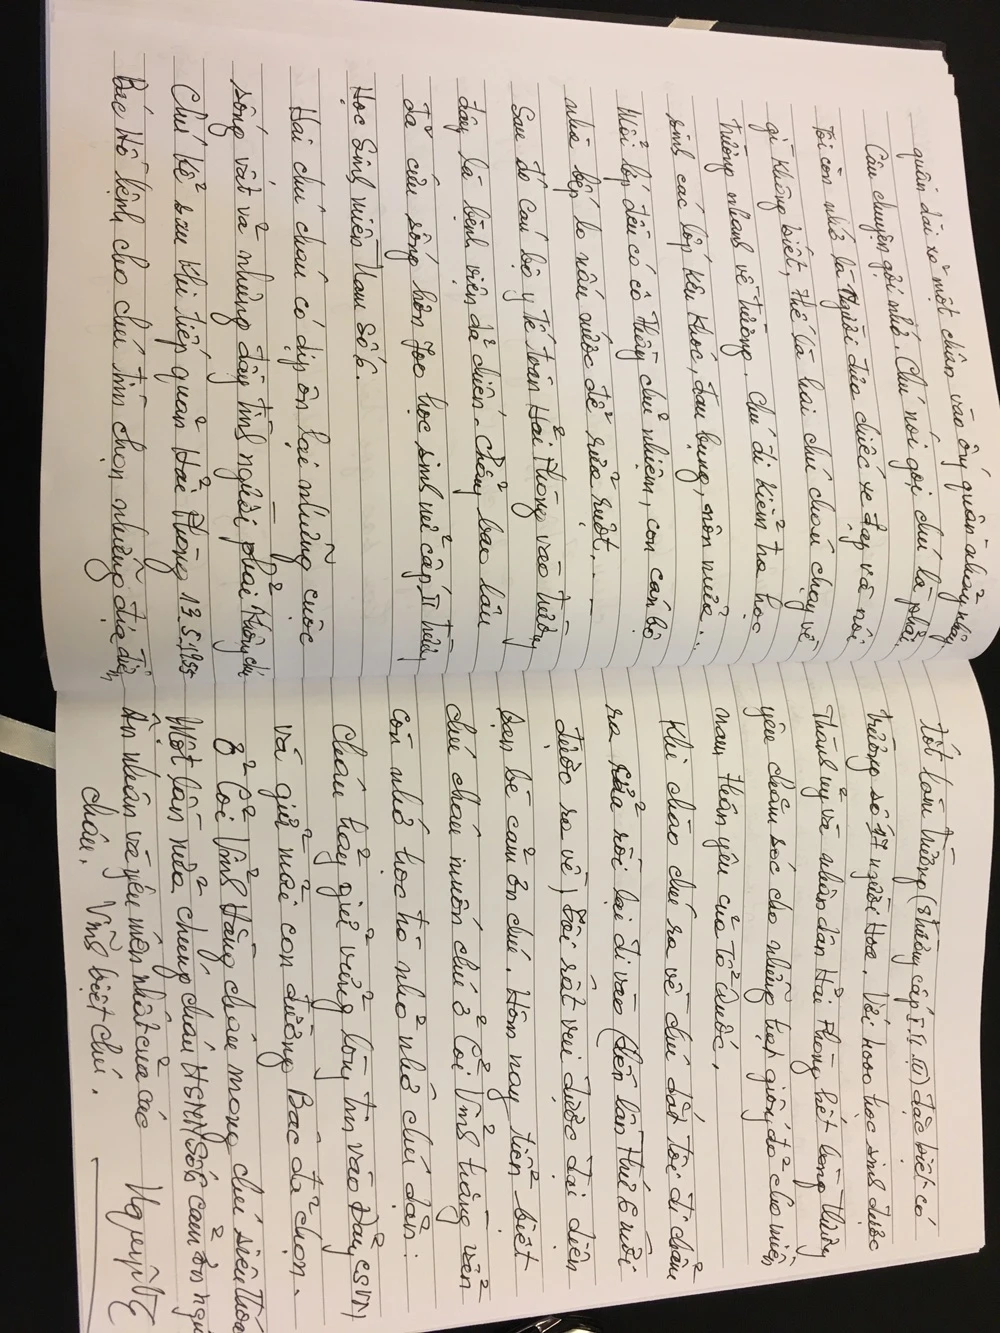 quần dài xỏ một chân vào ống quần nhảy nhảy
Câu chuyện gợi nhớ. Chú nói gọi chú là phải.
Tôi còn nhớ là Người đưa chiếc xe đạp và nói
gì không biết, thế là hai chú cháu chạy về
trường nhanh về trường. Chú đi kiểm tra học
sinh các lớp kêu khóc, đau bụng, nôn mửa...
Mỗi lớp đều có cô thầy chủ nhiệm, con cán bộ
nhà bếp lo nấu nước để rửa ruột...
Sau đó cán bộ y tế toàn Hải Phòng vào trường
đây là bệnh viện dã chiến. Chẳng bao lâu
đã cứu sống hơn 700 học sinh nữ cấp II trường
Học Sinh miền Nam số 6.
Hai chú cháu có dịp ôn lại những cuộc
sống vất vả nhưng đầy tình người phải không chú
Chú kể sau khi tiếp quản Hải Phòng 13.5.1955
Bác Hồ lệnh cho chú tìm chọn những địa điểm
tốt làm trường (8 trường cấp I II III) đặc biệt có
trường số 17 người Hoa. Với học sinh được
Thành ủy và nhân dân Hải Phòng hết lòng thương
yêu chăm sóc cho những hạt giống đỏ cho miền
nam thân yêu của Tổ Quốc.
Khi chào chú ra về chú dắt tôi đi chầm
ra cửa rồi lại đi vào (đến lần thứ 6 mới
được ra về) Tôi rất vui được đại diện
bạn bè cảm ơn chú. Hôm nay tiễn biệt
chú cháu muốn chú ở Cõi Vĩnh hằng vẫn
còn nhớ học trò nhỏ nhớ chú dặn:
Cháu hãy giữ vững lòng tin vào Đảng CSVN
và giữ mãi con đường Bác đã chọn.
Ở Cõi Vĩnh Hằng cháu mong chú siêu thoát
Một lần nữa chúng cháu HSMN Số 6 cảm ơn người
Ân nhân và yêu mến nhất của các
cháu. Vĩnh biệt chú.